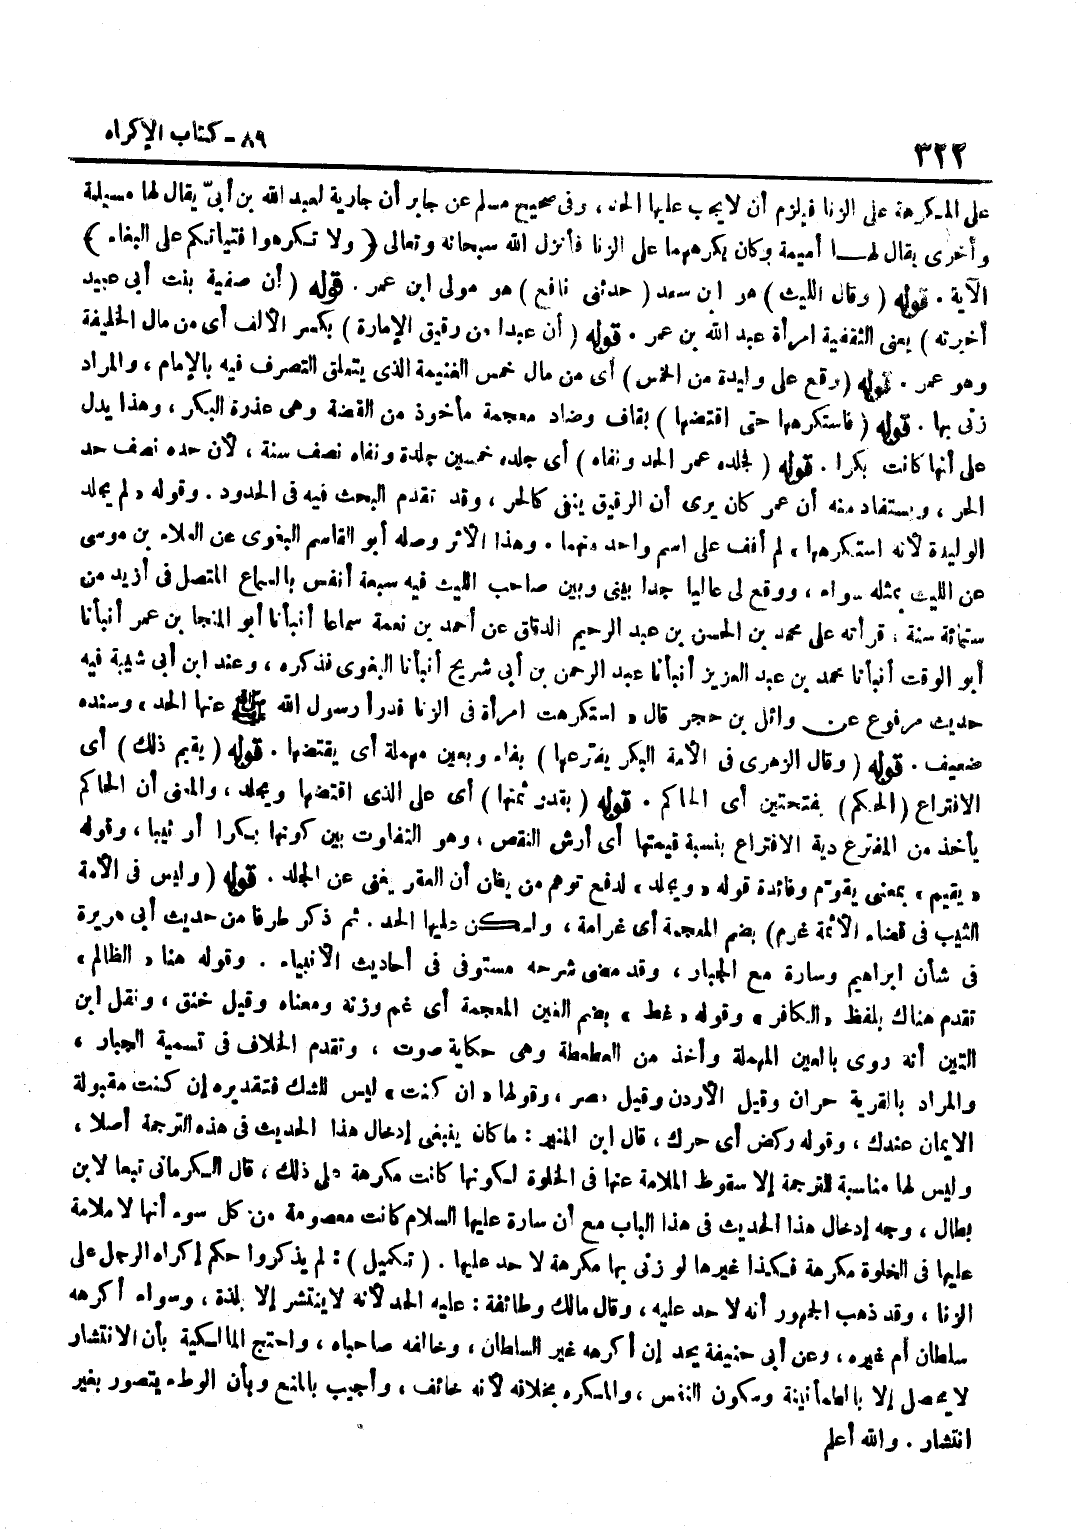 ٨٩ - كتاب الإكراه
٣٢٢
على المكرهة على الزنا فيلزم أن لا يجب عليها الحد ، وفى صحيح مسلم عن جابر أن جارية لعبد الله بن أبىّ يقال لها مسيكة
وأخرى يقال لهـــا أميمة وكان يكرههما على الزنا فأنزل الله سبحانه وتعالى ﴿ ولا تكرهوا فتياتكم على البغاء ﴾
الآية . قوله ( وقال الليث ) هو ابن سعد ( حدثنى نافع ) هو مولى ابن عمر . قوله ( أن صفية بنت أبى عبيد
أخبرته ) يعنى الثقفية امرأة عبد الله بن عمر . قوله ( أن عبدا من رقيق الإمارة ) بكسر الألف أى من مال الخليفة
وهو عمر . قوله ( وقع على وليدة من الخمس ) أى من مال خمس الغنيمة الذى يتعلق التصرف فيه بالإمام ، والمراد
زنى بها . قوله ( فاستكرهها حتى اقتضها ) بقاف وضاد معجمة مأخوذ من القضة وهى عذرة البكر ، وهذا يدل
على أنها كانت بكرا . قوله ( فجلده عمر الحد ونفاه ) أى جلده خمسين جلدة ونفاه نصف سنة ، لأن حده نصف حد
الحر ، ويستفاد منه أن عمر كان يرى أن الرقيق ينفى كالحر ، وقد تقدم البحث فيه فى الحدود . وقوله « لم يجلد
الوليدة لأنه استكرهها » لم أقف على اسم واحد منهما . وهذا الأثر وصله أبو القاسم البغوى عن العلاء بن موسى
عن الليث بمثله سواء ، ووقع لى عاليا جدا بينى وبين صاحب الليث فيه سبعة أنفس بالسماع المتصل فى أزيد من
ستمائة سنة ، قرأته على محمد بن الحسن بن عبد الرحيم الدقاق عن أحمد بن نعمة سماعا أنبأنا أبو المنجا بن عمر أنبأنا
أبو الوقت أنبأنا محمد بن عبد العزيز أنبأنا عبد الرحمن بن أبى شريح أنبأنا البغوى فذكره ، وعند ابن أبى شيبة فيه
حديث مرفوع عن وائل بن حجر قال « استكرهت امرأة فى الزنا فدرأ رسول الله ﷺ عنها الحد » وسنده
ضعيف . قوله ( وقال الزهرى فى الأمة البكر يفترعها ) بفاء وبعين مهملة أى يقتضها . قوله ( يقيم ذلك ) أى
الافتراع ( الحكم ) بفتحتين أى الحاكم . قوله ( بقدر ثمنها ) أى على الذى اقتضها ويجلد ، والمعنى أن الحاكم
يأخذ من المفترع دية الافتراع بنسبة قيمتها أى أرش النقص ، وهو التفاوت بين كونها بكرا أو ثيبا ، وقوله
« يقيم » بمعنى يقوّم وفائدة قوله « ويجلد » لدفع توهم من يظن أن العقر يغنى عن الجلد . قوله ( وليس فى الأمة
الثيب فى قضاء الأئمة غرم ) بضم المعجمة أى غرامة ، ولكن عليها الحد . ثم ذكر طرفا من حديث أبى هريرة
فى شأن ابراهيم وسارة مع الجبار ، وقد مضى شرحه مستوفى فى أحاديث الأنبياء . وقوله هنا « الظالم »
تقدم هناك بلفظ « الكافر » وقوله « غط » بضم الغين المعجمة أى غم وزنه ومعناه وقيل خنق ، ونقل ابن
التين أنه روى بالعين المهملة وأخذ من العطعطة وهى حكاية صوت ، وتقدم الخلاف فى تسمية الجبار ،
والمراد بالقرية حران وقيل الأردن وقيل مصر ، وقولها « ان كنت » ليس للشك فتقديره إن كنت مقبولة
الايمان عندك ، وقوله ركض أى حرك ، قال ابن المنير : ما كان ينبغى إدخال هذا الحديث فى هذه الترجمة أصلا ،
وليس لها مناسبة للترجمة إلا سقوط الملامة عنها فى الخلوة لكونها كانت مكرهة على ذلك ، قال الكرمانى تبعا لابن
بطال ، وجه إدخال هذا الحديث فى هذا الباب مع أن سارة عليها السلام كانت معصومة من كل سوء أنها لا ملامة
عليها فى الخلوة مكرهة فكذا غيرها لو زنى بها مكرهة لا حد عليها . ( تكميل ) : لم يذكروا حكم إكراه الرجل على
الزنا ، وقد ذهب الجمهور أنه لا حد عليه ، وقال مالك وطائفة : عليه الحد لأنه لا ينتشر إلا بلذة ، وسواء أكرهه
سلطان أم غيره ، وعن أبى حنيفة يحد إن أكرهه غير السلطان ، وخالفه صاحباه ، واحتج المالكية بأن الانتشار
لا يحصل إلا بالطمأنينة وسكون النفس ، والمكره بخلافه لأنه خائف ، وأجيب بالمنع وبأن الوطء يتصور بغير
انتشار . والله أعلم